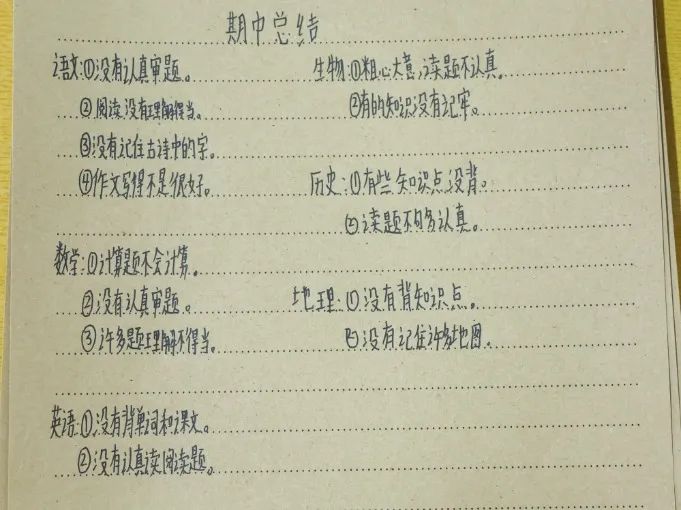 期中总结
语文:①没有认真审题。
②阅读没有理解得当。
③没有记住古诗中的字。
④作文写得不是很好。
数学:①计算题不会计算。
②没有认真审题。
③许多题理解不得当。
英语:①没有背单词和课文。
②没有认真读阅读题。
生物:①粗心大意,读题不认真。
②有的知识没有记牢。
历史:①有些知识点没背。
②读题不够认真。
地理:①没有背知识点。
②没有记住许多地图。